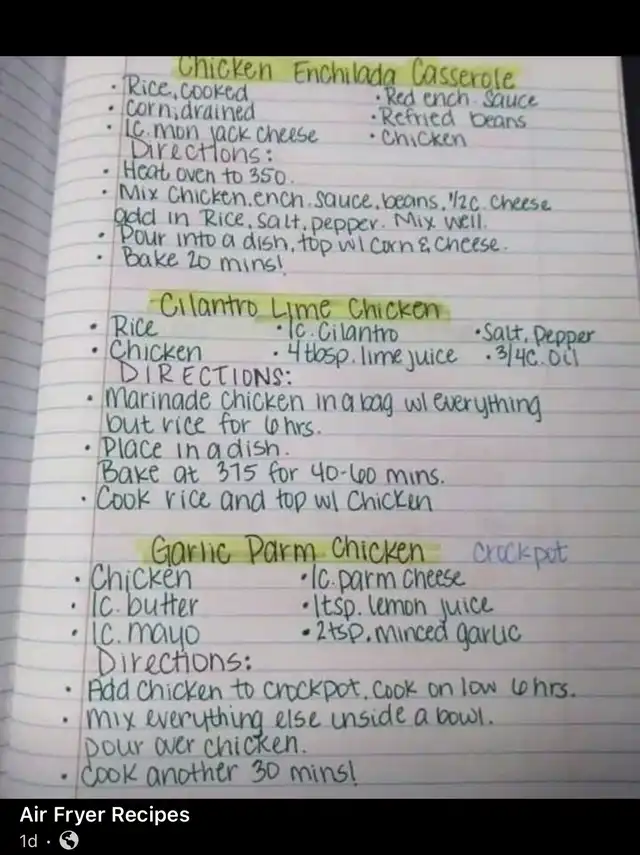 Chicken Enchilada Casserole
• Rice, cooked • Red ench. sauce
• corn, drained • Refried beans
• 1c. mon jack cheese • Chicken
Directions:
• Heat oven to 350.
• Mix Chicken, ench. sauce, beans, 1/2c. cheese
add in Rice, salt, pepper. Mix well.
• Pour into a dish, top w/ corn & cheese.
• Bake 20 mins!
Cilantro Lime Chicken
• Rice • 1c. Cilantro • Salt, Pepper
• Chicken • 4 tbsp. lime juice • 3/4c. Oil
DIRECTIONS:
• Marinade chicken in a bag w/ everything
but rice for 6 hrs.
• Place in a dish.
Bake at 375 for 40-60 mins.
• Cook rice and top w/ Chicken
Garlic Parm Chicken crockpot
• Chicken • 1c. parm cheese
• 1c. butter • 1tsp. lemon juice
• 1c. mayo • 2tsp. minced garlic
Directions:
• Add chicken to crockpot. Cook on low 6 hrs.
• mix everything else inside a bowl.
pour over chicken.
• Cook another 30 mins!
Air Fryer Recipes
1d ·